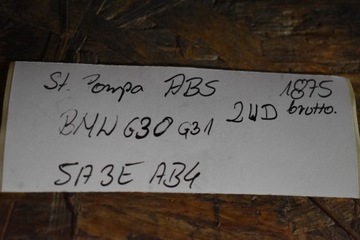 St. Pompa ABS 1875
BMW G30 G31 2WD brutto.
5A3E AB4